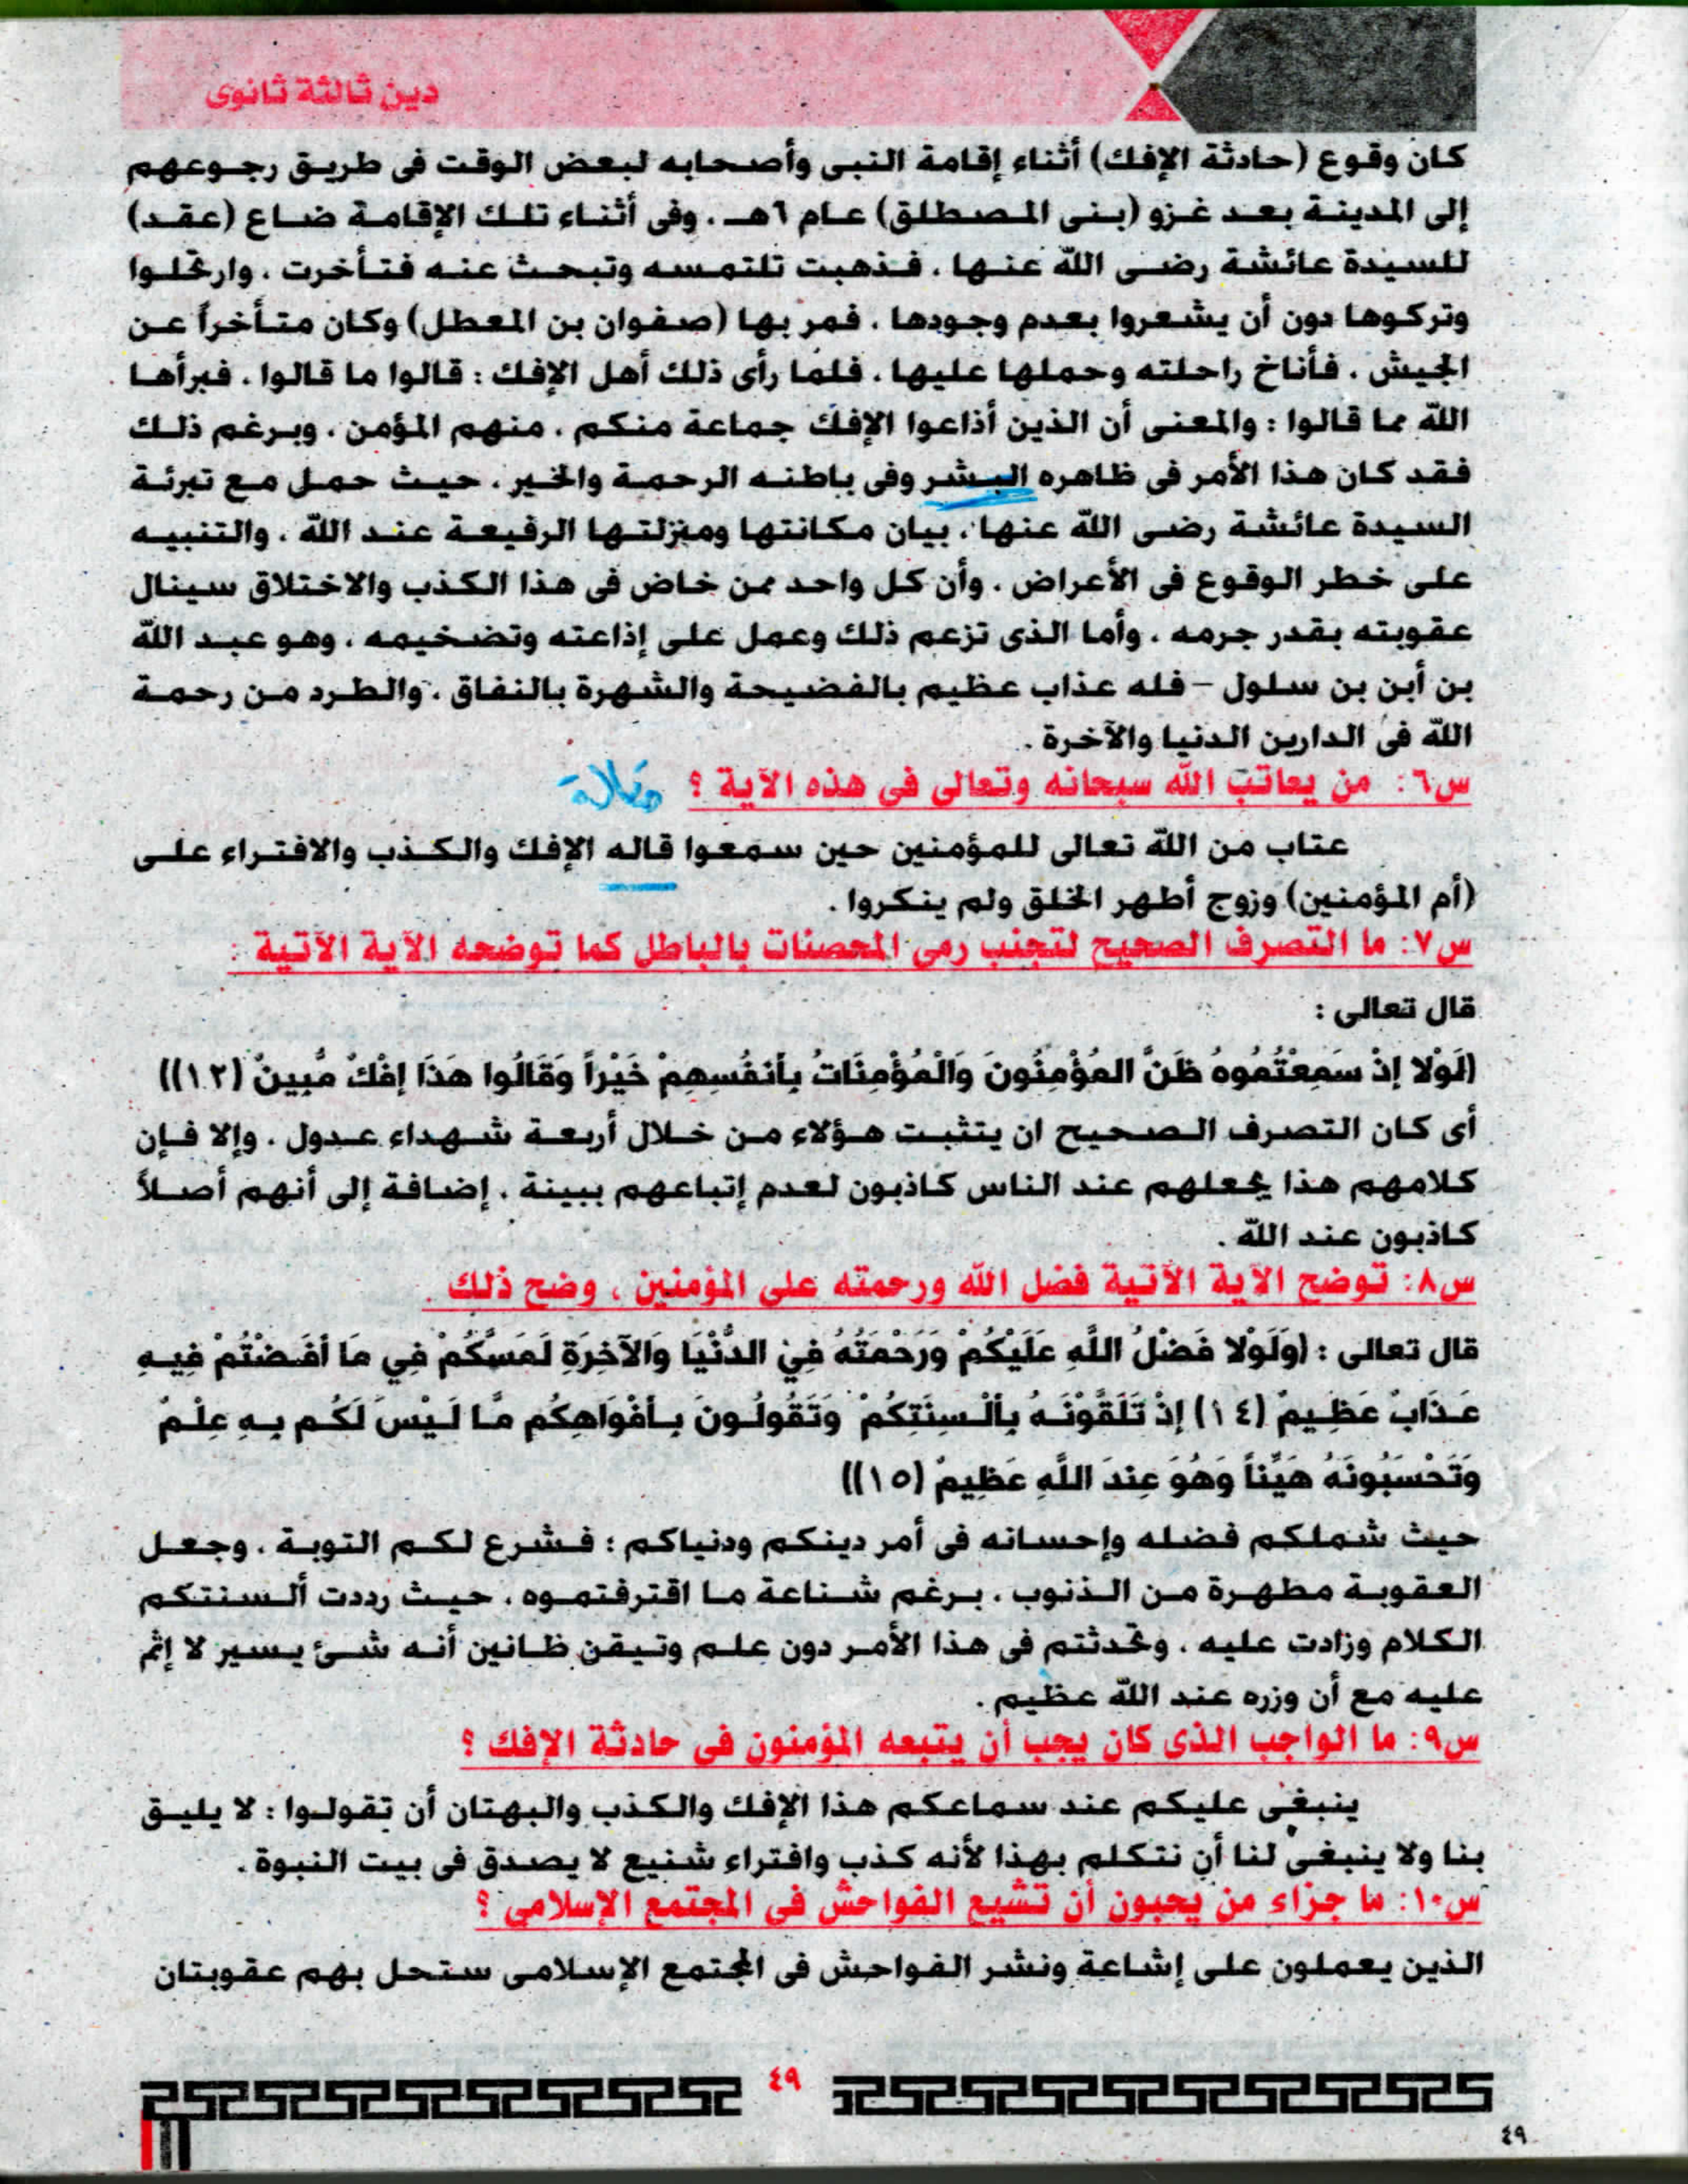 دين ثالثة ثانوى
كان وقوع (حادثة الإفك) أثناء إقامة النبى وأصحابه لبعض الوقت فى طريق رجوعهم
إلى المدينة بعد غزو (بنى المصطلق) عام ٦هـ . وفى أثناء تلك الإقامة ضاع (عقد)
للسيدة عائشة رضى الله عنها . فذهبت تلتمسه وتبحث عنه فتأخرت . وارتحلوا
وتركوها دون أن يشعروا بعدم وجودها . فمر بها (صفوان بن المعطل) وكان متأخراً عن
الجيش . فأناخ راحلته وحملها عليها . فلما رأى ذلك أهل الإفك : قالوا ما قالوا . فبرأها
الله مما قالوا : والمعنى أن الذين أذاعوا الإفك جماعة منكم . منهم المؤمن . وبرغم ذلك
فقد كان هذا الأمر فى ظاهره البشر وفى باطنه الرحمة والخير . حيث حمل مع تبرئة
السيدة عائشة رضى الله عنها . بيان مكانتها ومنزلتها الرفيعة عند الله . والتنبيه
على خطر الوقوع فى الأعراض . وأن كل واحد ممن خاض فى هذا الكذب والاختلاق سينال
عقوبته بقدر جرمه . وأما الذى تزعم ذلك وعمل على إذاعته وتضخيمه . وهو عبد الله
بن أبن بن سلول – فله عذاب عظيم بالفضيحة والشهرة بالنفاق . والطرد من رحمة
الله فى الدارين الدنيا والآخرة .
س٦: من يعاتب الله سبحانه وتعالى فى هذه الآية ؟
عتاب من الله تعالى للمؤمنين حين سمعوا قاله الإفك والكذب والافتراء على
(أم المؤمنين) وزوج أطهر الخلق ولم ينكروا .
س٧: ما التصرف الصحيح لتجنب رمى المحصنات بالباطل كما توضحه الآية الآتية :
قال تعالى :
(لَوْلا إِذْ سَمِعْتُمُوهُ ظَنَّ المُؤْمِنُونَ وَالْمُؤْمِنَاتُ بِأَنفُسِهِمْ خَيْراً وَقَالُوا هَذَا إِفْكٌ مُّبِينٌ (١٢))
أى كان التصرف الصحيح ان يتثبت هؤلاء من خلال أربعة شهداء عدول . وإلا فإن
كلامهم هذا يجعلهم عند الناس كاذبون لعدم إتباعهم ببينة . إضافة إلى أنهم أصلاً
كاذبون عند الله .
س٨: توضح الآية الآتية فضل الله ورحمته على المؤمنين ، وضح ذلك .
قال تعالى : (وَلَوْلا فَضْلُ اللَّهِ عَلَيْكُمْ وَرَحْمَتُهُ فِيْ الدُّنْيَا وَالآخِرَةِ لَمَسَّكُمْ فِي مَا أَفَضْتُمْ فِيهِ
عَذَابٌ عَظِيمٌ (١٤) إِذْ تَلَقَّوْنَهُ بِأَلْسِنَتِكُمْ وَتَقُولُونَ بِأَفْوَاهِكُم مَّا لَيْسَ لَكُم بِهِ عِلْمٌ
وَتَحْسَبُونَهُ هَيِّناً وَهُوَ عِندَ اللَّهِ عَظِيمٌ (١٥))
حيث شملكم فضله وإحسانه فى أمر دينكم ودنياكم : فشرع لكم التوبة . وجعل
العقوبة مطهرة من الذنوب . برغم شناعة ما اقترفتموه . حيث رددت ألسنتكم
الكلام وزادت عليه . وتحدثتم فى هذا الأمر دون علم وتيقن ظانين أنه شئ يسير لا إثم
عليه مع أن وزره عند الله عظيم .
س٩: ما الواجب الذى كان يجب أن يتبعه المؤمنون فى حادثة الإفك ؟
ينبغى عليكم عند سماعكم هذا الإفك والكذب والبهتان أن تقولوا : لا يليق
بنا ولا ينبغى لنا أن نتكلم بهذا لأنه كذب وافتراء شنيع لا يصدق فى بيت النبوة .
س١٠: ما جزاء من يحبون أن تشيع الفواحش فى المجتمع الإسلامى ؟
الذين يعملون على إشاعة ونشر الفواحش فى المجتمع الإسلامى ستحل بهم عقوبتان
٤٩
٤٩